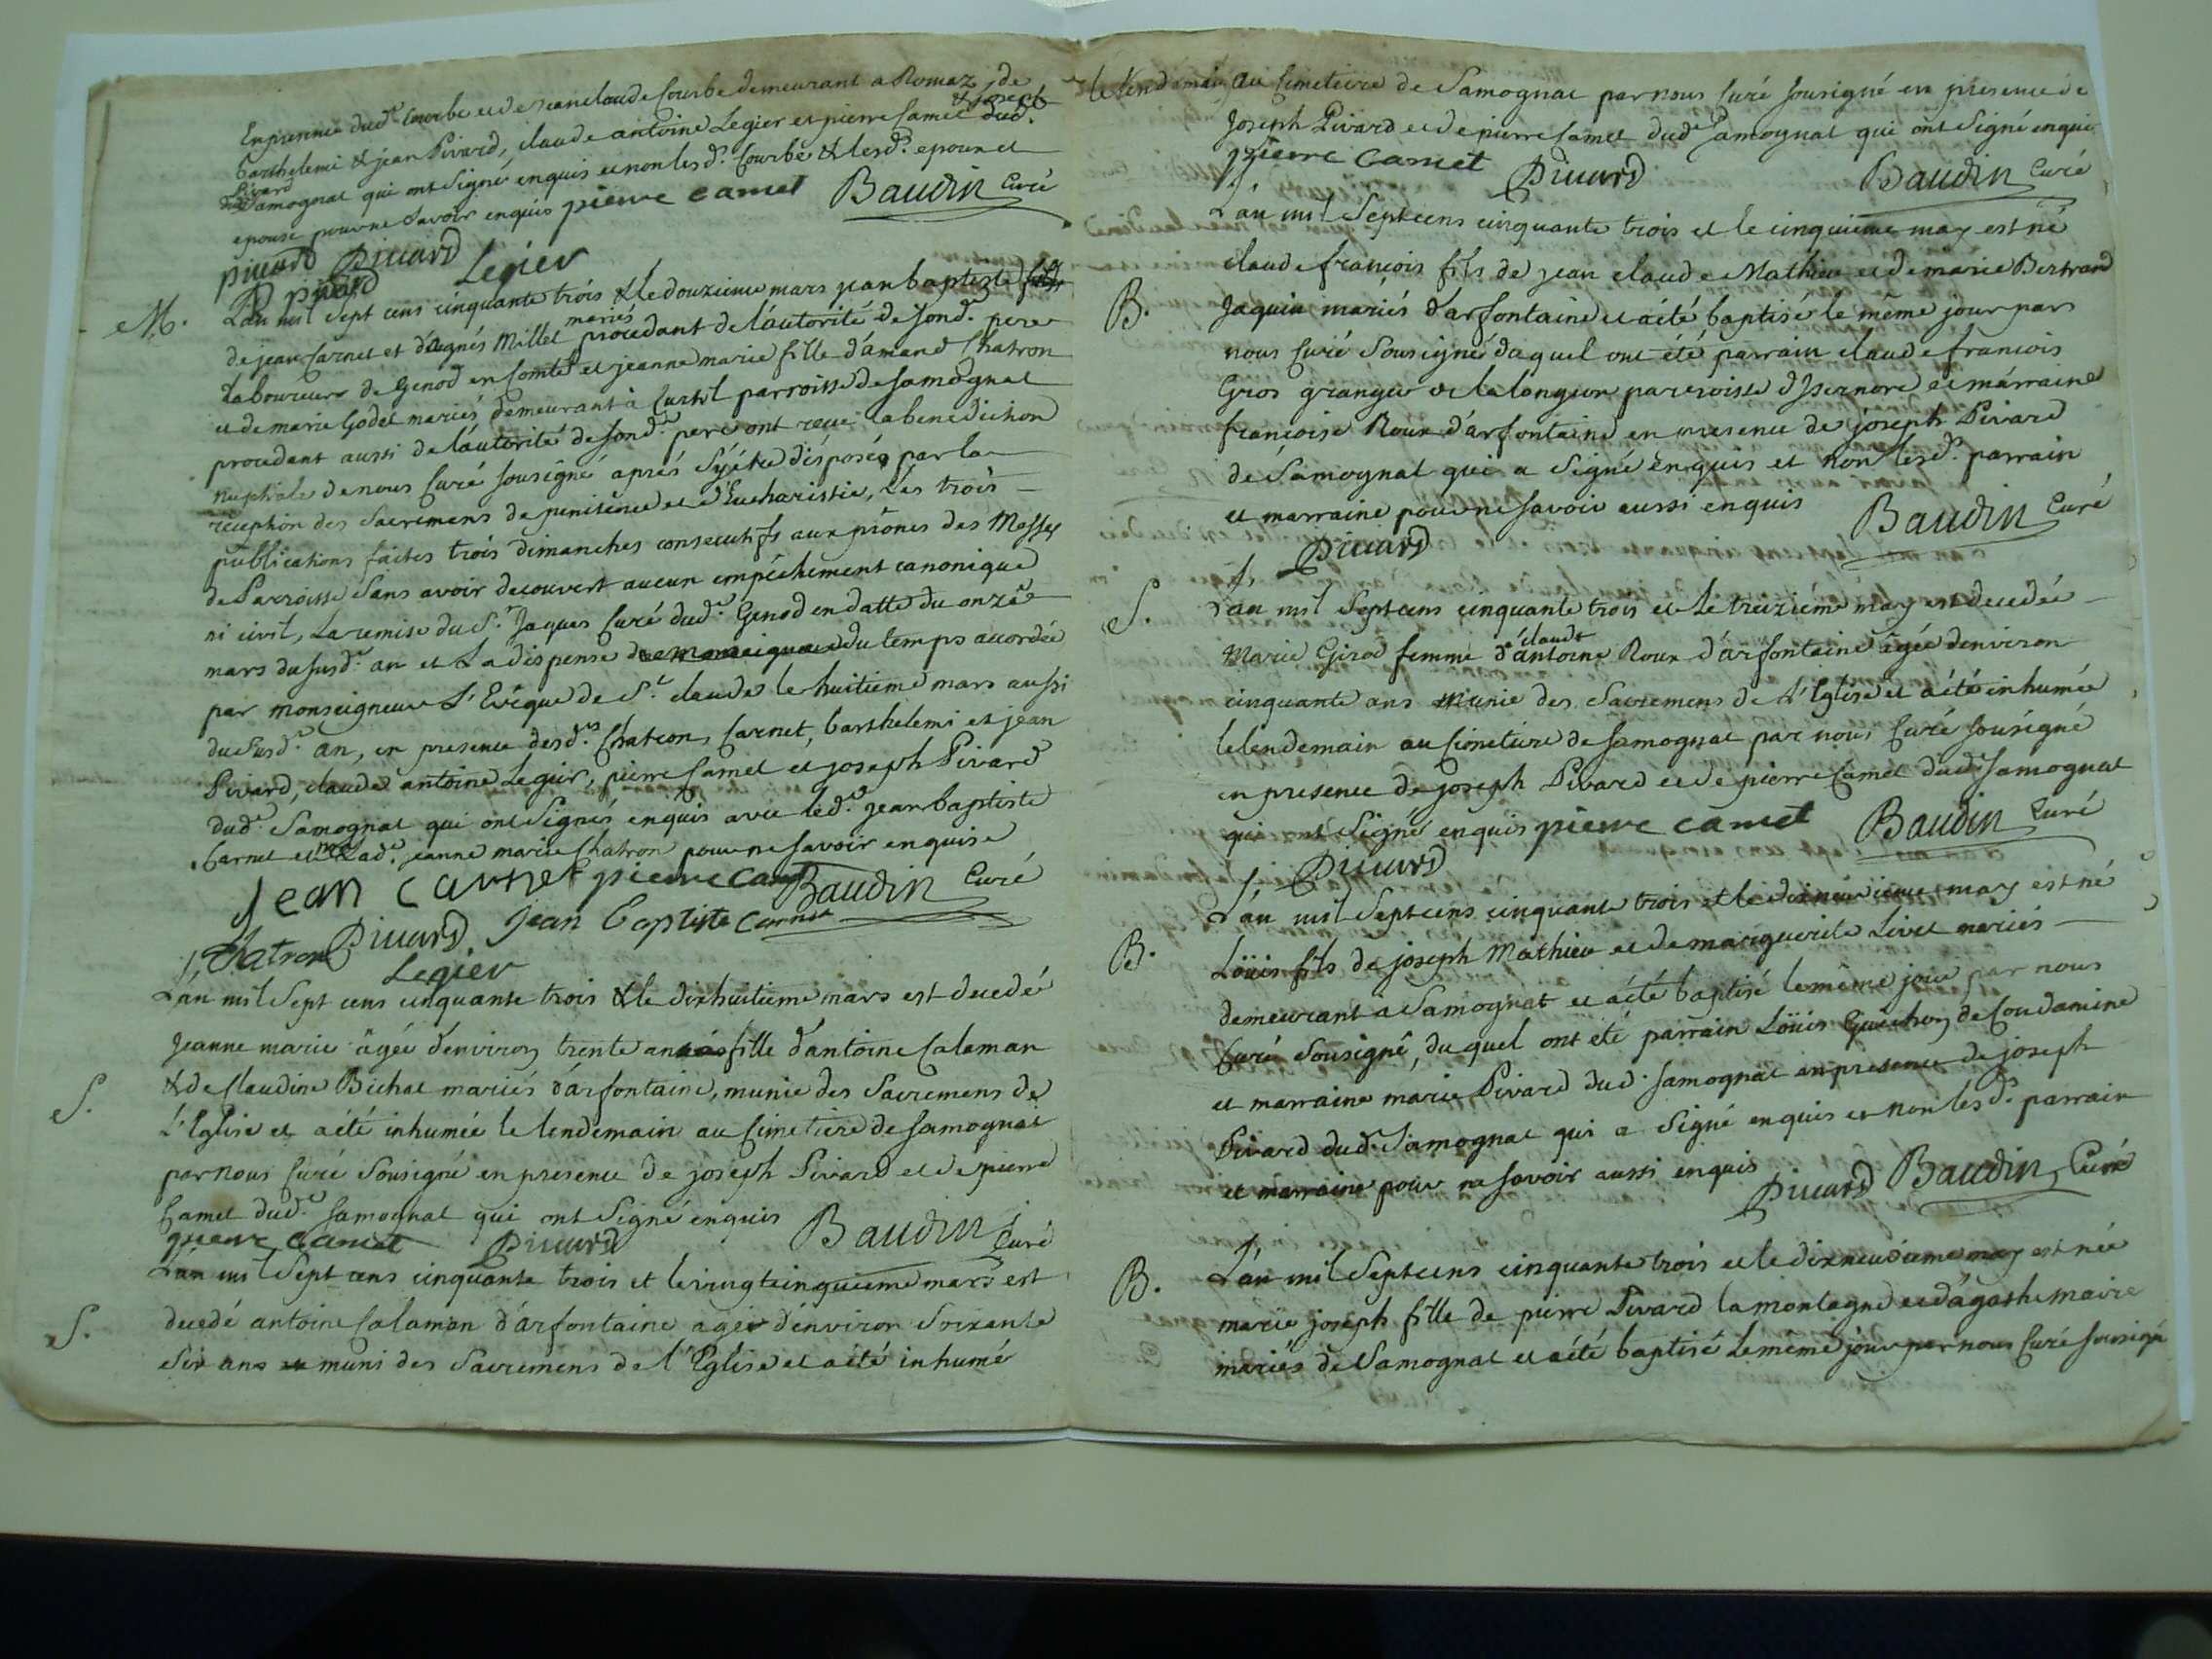 En presence dud.t Courbe et de jean claude Courbe demeurant a Romaz, de
Barthelemi & jean Pivard, claude antoine Legier et pierre Camet & joseph dud.t
Pivard
Samognat qui ont signé enquis et non lesd.s Courbe & lesd.s epoux et
epouse pour ne savoir enquis pierre camet Baudin Curé
pivard Pivard
pivard Legier
M. L'an mil sept cens cinquante trois & le douzieme mars jean baptiste fils
de jean Carnet et d'agnés Millet mariés procedant de l'autorité de sond.t pere
Laboureur de Genod en Comté et jeanne marie fille d'amand Chatron
et de marie Godet mariés demeurant à Curtil parroisse de Samognat
procedant aussi de l'autorité de sond.t pere ont reçu la benediction
nuptiale de nous Curé sousigné aprés s'y étre disposés par la
reception des Sacremens de penitence et d'Eucharistie, Les trois
publications faites trois dimanches consecutifs aux prônes des Messes
de Parroisse sans avoir decouvert aucun empêchement canonique
ni civil, La remise du S.r Jaques Curé dud.t Genod en datte du onzé
mars du susd.t an et La dispense du temps accordée
par monseigneur L'Evêque de S.t claude le huitieme mars aussi
du susd.t an, en presence desd.ts Chatron, Carnet, barthelemi et jean
Pivard, claude antoine Legier, pierre Camet et joseph Pivard
dud.t Samognat qui ont signés enquis avec led.t jean baptiste
Carnet et non lad.e jeanne marie Chatron pour ne savoir enquise
Jean Carnet pierre camet Baudin Curé
Chatron Pivard Jean Baptiste Carnet
Legier
L'an mil sept cens cinquante trois & le dixhuitieme mars est decedé
Jeanne marie âgée d'environ trente ans fille d'antoine Calaman
S. & de Claudine Bichat mariés d'arfontaine, munie des Sacremens de
L'Eglise et a été inhumée le lendemain au Cimetiere de Samognat
par nous Curé Sousigné en presence de joseph Pivard et de pierre
Camet dud.t Samognat qui ont signé enquis Baudin Curé
pierre camet Pivard
L'an mil sept cens cinquante trois et le vingtcinquieme mars est
S. decedé antoine Calaman d'arfontaine agé d'environ soixante
six ans muni des Sacremens de l'Eglise et a été inhumé
le lendemain au Cimetiere de Samognat par nous Curé sousigné en présence de
Joseph Pivard et de pierre Camet dud.t Samognat qui ont signé enquis
pierre camet Pivard Baudin Curé
L'an mil sept cens cinquante trois et le cinquieme may est né
claude françois fils de jean claude Mathieu et de marie Bertrand
B. Jaquin mariés d'arfontaine et a été baptisé le même jour par
nous Curé Sousigné duquel ont été parrain claude francois
Gros granger de la longeon parroisse d'Isernore et marraine
françoise Roux d'arfontaine en presence de joseph Pivard
de Samognat qui a signé enquis et non lesd.s parrain
et marraine pour ne savoir aussi enquis Baudin Curé
Pivard
S. L'an mil sept cens cinquante trois et Le treizieme may est decedée
Marie Girod femme d'antoine claude Roux d'arfontaine âgée d'environ
cinquante ans munie des Sacremens de L'Eglise et a été inhumée
le lendemain au Cimetiere de Samognat par nous Curé sousigné
en presence de joseph Pivard et de pierre Camet dud.t Samognat
qui ont signé enquis pierre camet Baudin Curé
Pivard
L'an mil sept cens cinquante trois et le dixneuvieme may est né
B. Loüis fils de joseph Mathieu et de marguerite Livet mariés
demeurant à Samognat et a été baptisé le même jour par nous
Curé Sousigné, duquel ont été parrain Loüis Guichon de Condamine
et marraine marie Pivard dud.t Samognat en presence de joseph
Pivard dud.t Samognat qui a signé enquis et non lesd.s parrain
et marraine pour ne savoir aussi enquis Pivard Baudin Curé
B. L'an mil sept cens cinquante trois et le dixneuvieme may est née
marie joseph fille de pierre Pivard la montagne et d'agathe maire
mariés de Samognat et a été baptisé Le même jour par nous Curé sousigé